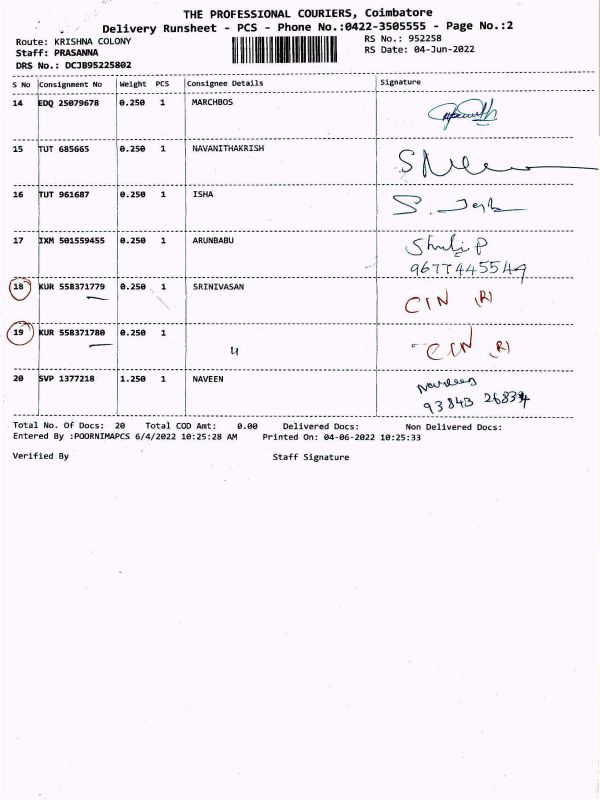 THE PROFESSIONAL COURIERS, Coimbatore
Delivery Runsheet - PCS - Phone No.:0422-3505555 - Page No.:2
Route: KRISHNA COLONY
RS No.: 952258
Staff: PRASANNA
RS Date: 04-Jun-2022
DRS No.: DCJB95225802
S No Consignment No Weight PCS Consignee Details Signature
14 EDQ 25079678 0.250 1 MARCHBOS
15 TUT 685665 0.250 1 NAVANITHAKRISH
16 TUT 961687 0.250 1 ISHA
17 IXM 501559455 0.250 1 ARUNBABU
9677445549
18 KUR 558371779 0.250 1 SRINIVASAN CIN (R)
19 KUR 558371780 0.250 1 CIN (R)
20 SVP 1377218 1.250 1 NAVEEN Naveen
93843 26834
Total No. Of Docs: 20 Total COD Amt: 0.00 Delivered Docs: Non Delivered Docs:
Entered By :POORNIMAPCS 6/4/2022 10:25:28 AM Printed On: 04-06-2022 10:25:33
Verified By Staff Signature